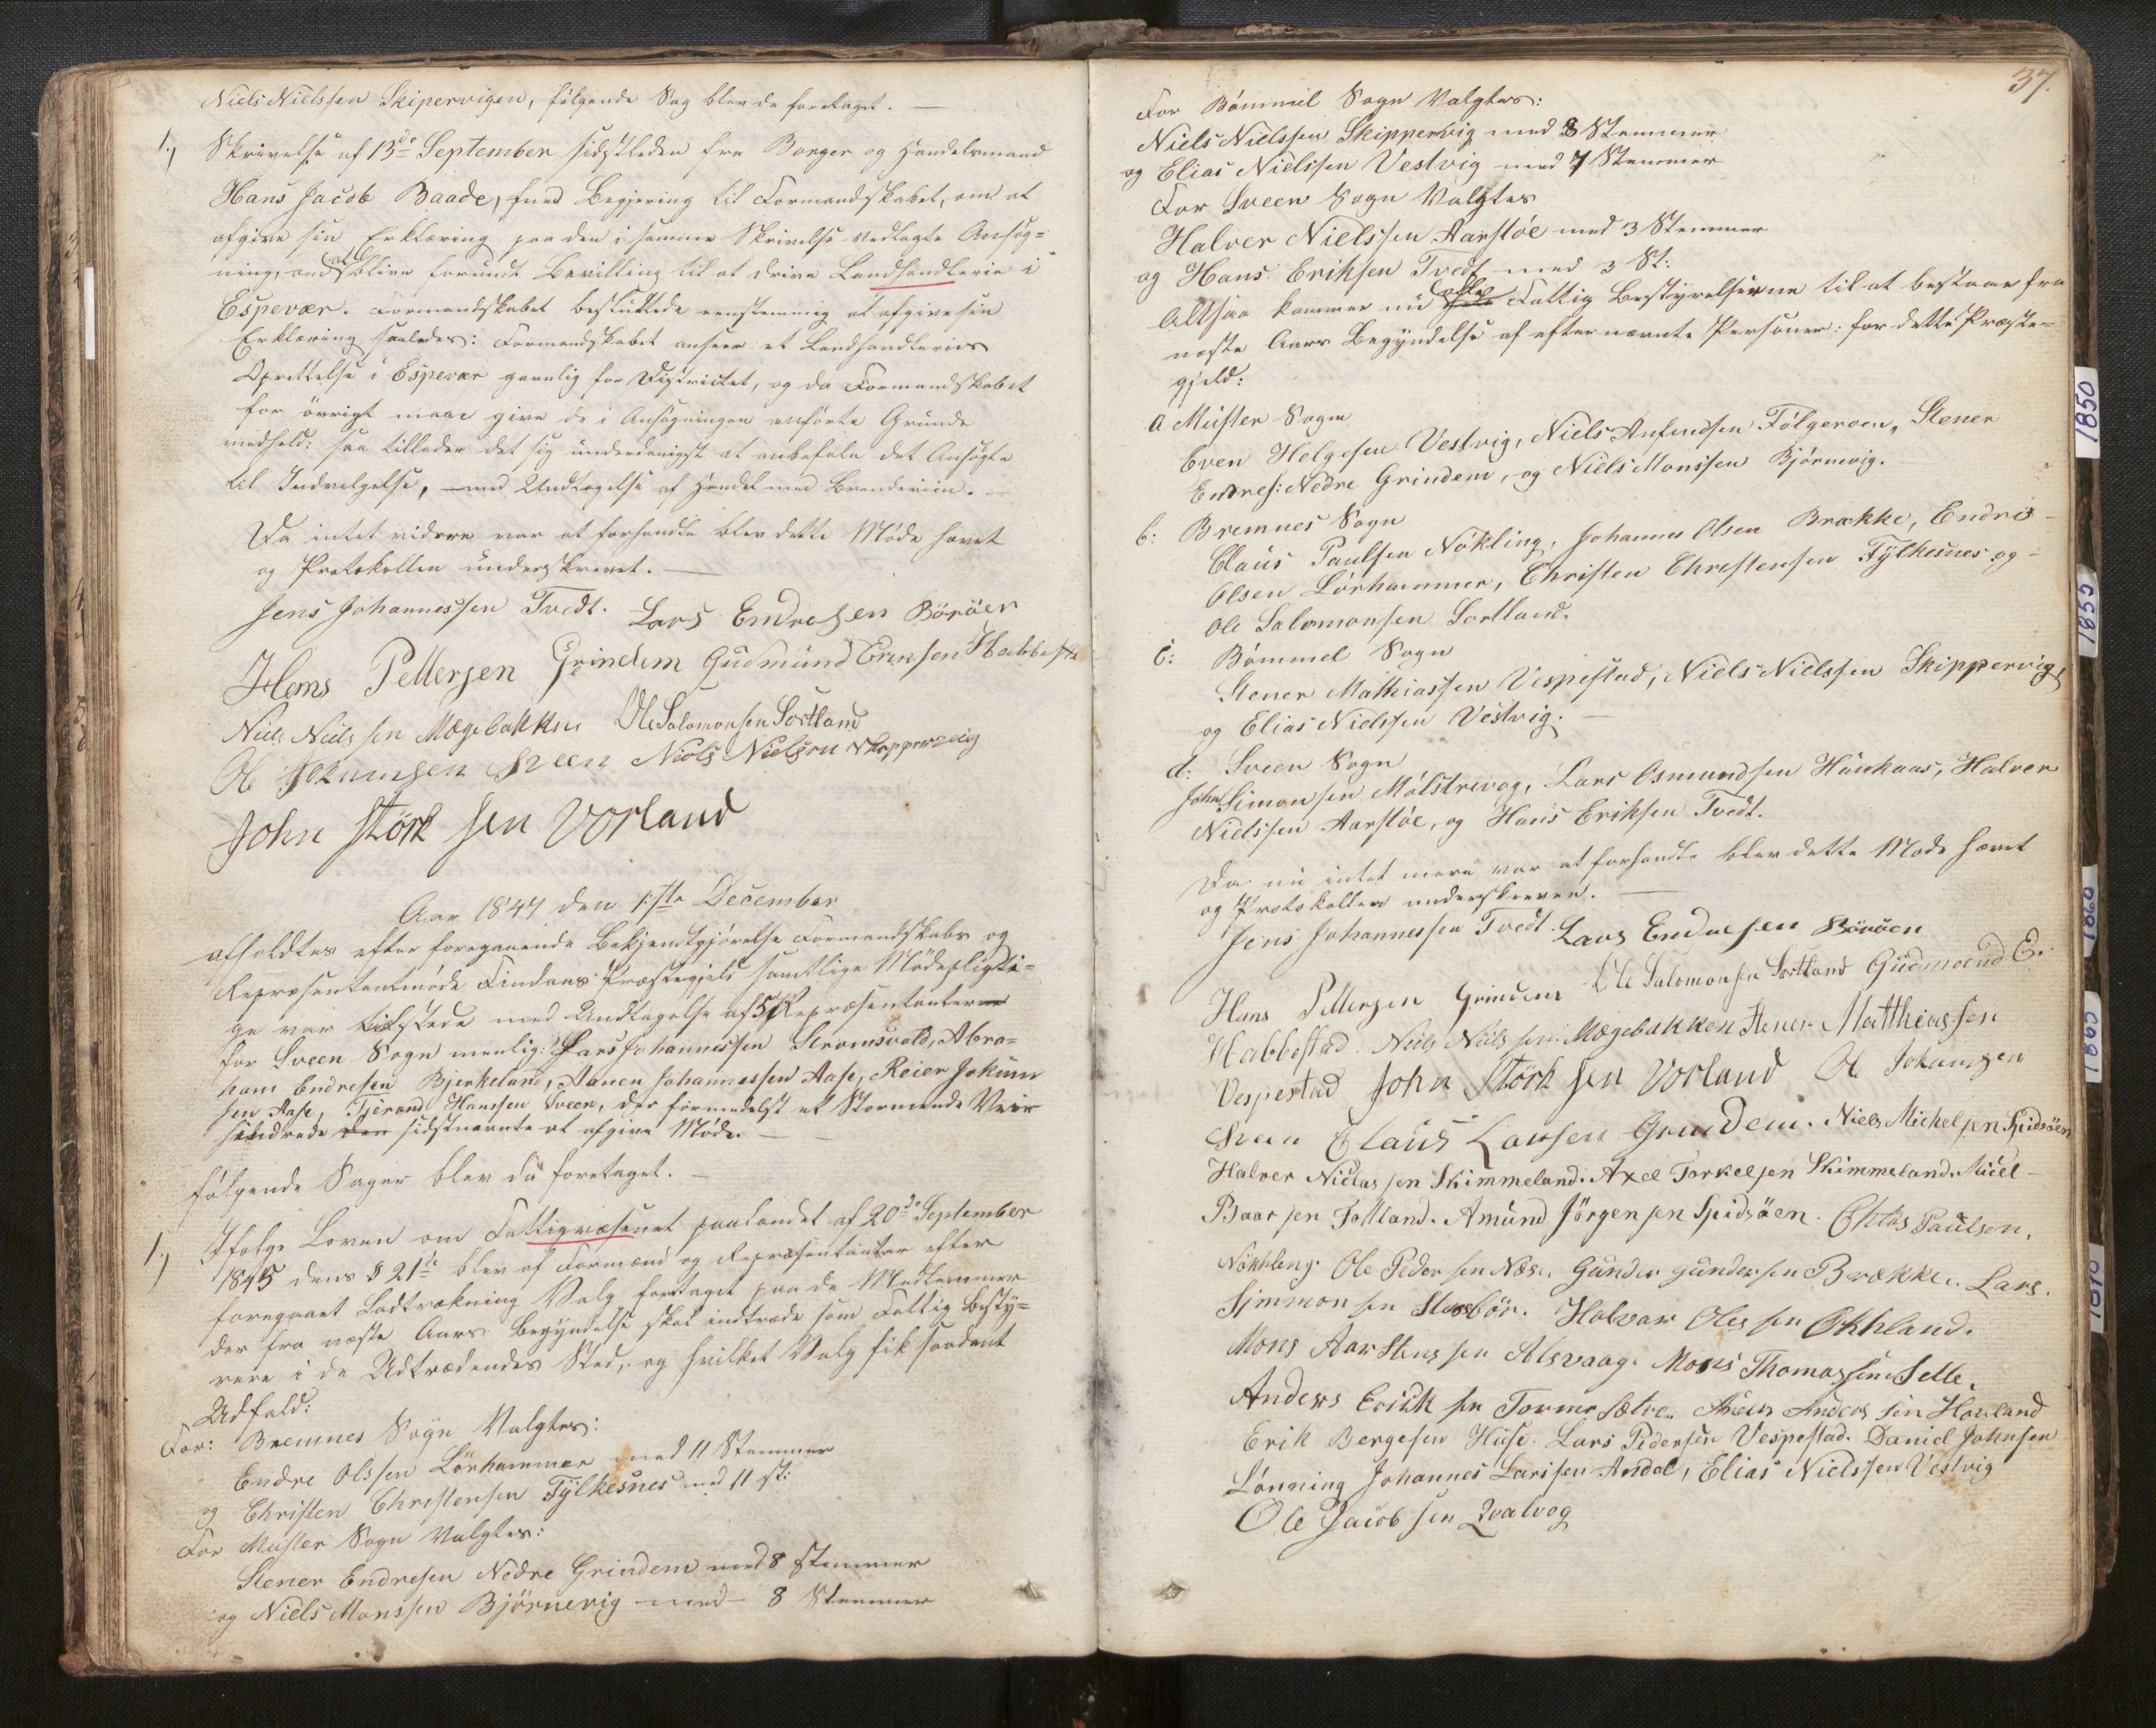 Niels Nielssen Skipervigen, følgende Sag blev da foretaget. —
1.) Skrivelse af 13de September sidstleden fra Borger og Handelsmand
Hans Jacob Baade, med Begjering til Formandskabet, om at
afgive sin Erklæring paa den i samme Skrivelse vedlagte Ansøg=
ning, om at blive forundt Bevilling til at drive Landhandlerie i
Espevær. Formandskabet besluttede eenstemmig at afgive sin
Erklæring saaledes: Formandskabet anseer et Landhandleries
Oprettelse i Espevær gavnlig for Districtet, og da Formandskabet
for øvrigt maae give de i Ansøgningen anførte Grunde
medhold: saa tillader det sig underdanigst at anbefale det Ansøgte
til Indvilgelse, — med Undtagelse af Handel med Brændeviin. —
Da intet videre var at forhandle blev dette Møde hævet
og Protokollen underskrevet. —
Jens Johannessen Tvedt. Lars Endresen Börøen
Hans Pettersen Grindem Gudmund Eriksen Habbestad
Niels Nielssen Mægebakken Ole Salomonsen Sortland
Ole Jokumsen Sveen Niels Nielsen Skippervig
John Störksen Vorland
Aar 1847 den 1ste December
afholdtes efter foregaaende Bekjendtgjørelse Formandskabs og
Repræsentantmøde Findaas Præstegjeld samtlige Mødepligti=
ge var tilstede med Undtagelse af 5 Repræsentanter
for Sveen Sogn nemlig: Lars Johannessen Straumsvold, Abra=
ham Endresen Bjerkeland, Aanen Johannessen Aase, Reier Jokum
sen Aase, Tjerand Hanssen Sveen, der formedelst et Stormende Veir
hindrede den sidstnævnte at afgive Møde. —
følgende Sager blev da foretaget. —
1.) Ifølge Loven om Fattigvæsenet paa Landet af 20de September
1845 dens § 21de blev af Formænd og Repræsentanter efter
foregaaet Lodtrækning Valg foretaget paa de Medlemmer
der fra næste Aars Begyndelse skal indtræde som Fattig Besty=
rere i de Udtrædendes Sted, og hvilket Valg fik saadant
Udfald:
For: Bremnes Sogn Valgtes:
Endre Olssen Lørhammer med 11 Stemmer
og Christen Christensen Fylkesnes med 11 St:
For Muster Sogn Valgtes:
Stener Endresen Nedre Grindem med 8 Stemmer
og Niels Monssen Bjørnevig — med — 8 Stemmer
37.
For Bømmel Sogn Valgtes:
Niels Nielssen Skippervig med 8 Stemmer
og Elias Nielssen Vestvig med 7 Stemmer
For Sveen Sogn Valgtes
Halver Nielssen Aarstøe med 3 Stemmer
og Hans Eriksen Tvedt med 3 St:
Altsaa kommer nu alle Fattig Bestyrelserne til at bestaae fra
næste Aars Begyndelse af efternævnte Personer: for dette Præste=
gjeld:
a Muster Sogn
Even Helgesen Vestvig, Niels Anfindsen Følgeroen, Stener
Endres: Nedre Grindem, og Niels Monssen Bjørnevig.
b: Bremnes Sogn
Claus Paulsen Nökling, Johannes Olsen Brække, Endre
Olsen Lørhammer, Christen Christensen Fylkesnes og
Ole Salomonsen Sortland.
c: Bømmel Sogn
Stener Mathiassen Vespestad, Niels Nielssen Skippervig,
og Elias Nielssen Vestvig. —
d: Sveen Sogn
John Simonsen Mølstrevog, Lars Osmundsen Haukaas, Halver
Nielssen Aarstøe, og Hans Eriksen Tvedt.
Da nu intet mere var at forhandle blev dette Møde hævet
og Protokollen underskreven. —
Jens Johannessen Tvedt. Lars Endresen Börøen
Hans Pettersen Grindem Ole Salomonsen Sortland Gudmund E.
Habbestad Niels Nielssen Mægebakken Stener Matthiassen
Vespestad John Störksen Vorland Ole Jokumsen
Sveen Claus Larssen Grindem. Niels Mickelsen Spidsöen
Halver Niclassen Skimmeland. Axel Torkelsen Skimmeland.
Baarsen Folland. Amund Jörgensen Spidsöen. Claus Paulsen.
Nökkling. Ole Pedersen Næse. Gunder Gundersen Brække. Lars.
Simmonsen Stusbör. Halvar Olessen Økland.
Mons Aarstensen Alsvaag. Mons Thomassen Selle.
Anders Erikksen Tormesætre. Anders Anderssen Hovland
Erik Bergesen Huse. Lars Pedersen Vespestad. Daniel Johnsen
Lønning Johannes Larssen Andal, Elias Nielssen Vestvig
Ole Jacobsen Qvalvog
1850
1855
1860
1865
1870